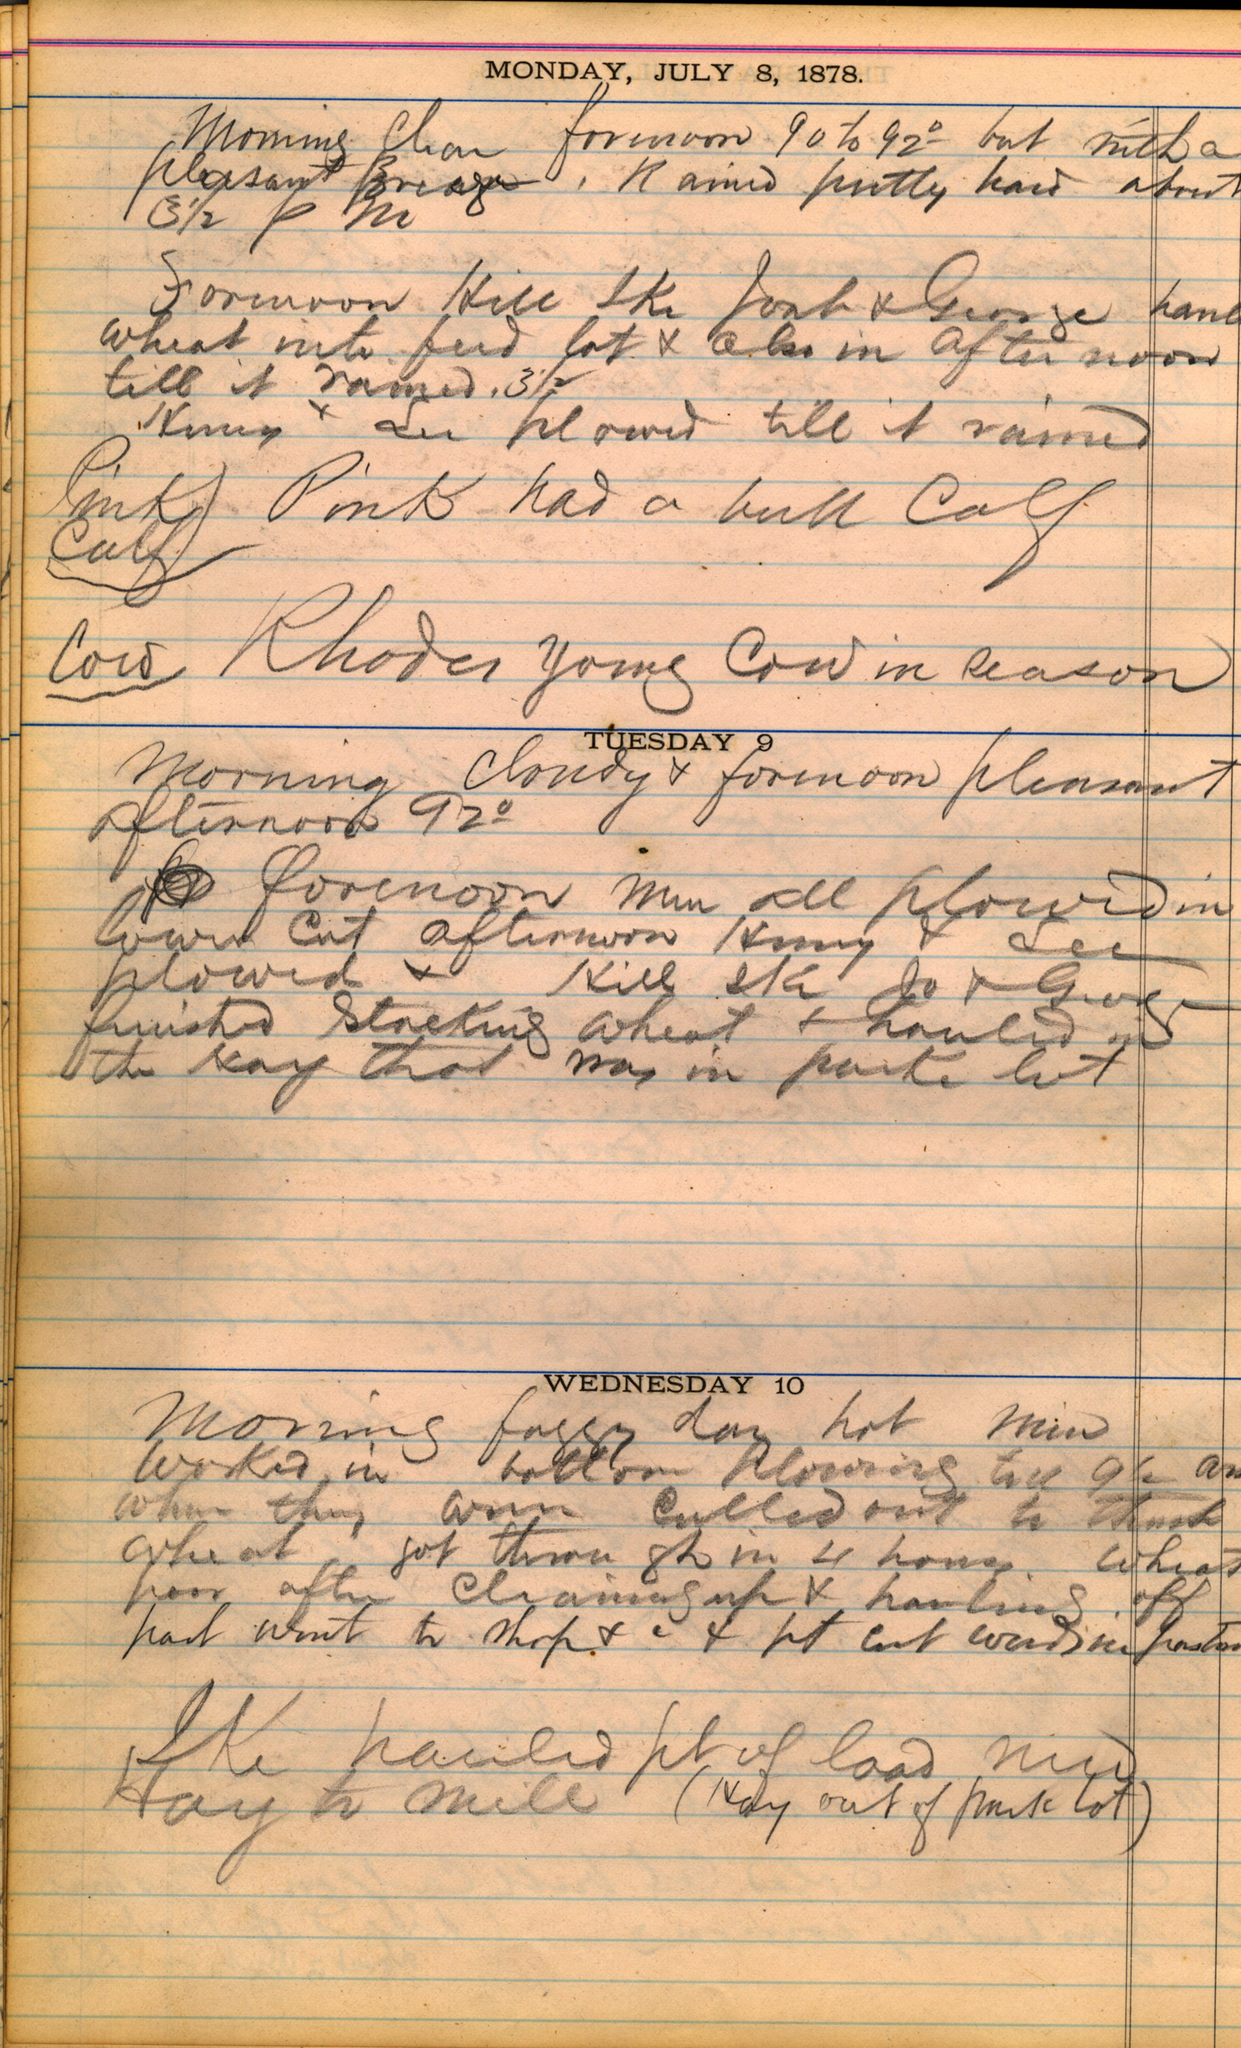 MONDAY, JULY 8, 1878.
Morning Clear forenoon 90 to 92° but with a
pleasant Breeze. Rained pretty hard about
3 1/2 P M
Forenoon Hill Ike Joab & George haul
wheat into feed lot & also in afternoon
till it rained. 3 1/2
Henry & Lee plowed till it rained
Pink Pink had a bull Calf
Calf
Cow Rhodes young Cow in season
TUESDAY 9
Morning Cloudy & forenoon pleasant
afternoon 92°
forenoon Men all plowed in
lower Cut afternoon Henry & Lee
plowed & Hill Ike Jo & George
finished Stacking wheat & hauled in
the Hay that was in park lot
WEDNESDAY 10
Morning foggy day hot Men
worked in bottom plowing till 9 1/2 am
when they were Called out to thresh
wheat got through in 4 hours. wheat
poor after Cleaning up & hauling off
part went to shop & c & pt cut weeds in pasture
Ike hauled pt of load new
Hay to Mill (Hay out of park lot)